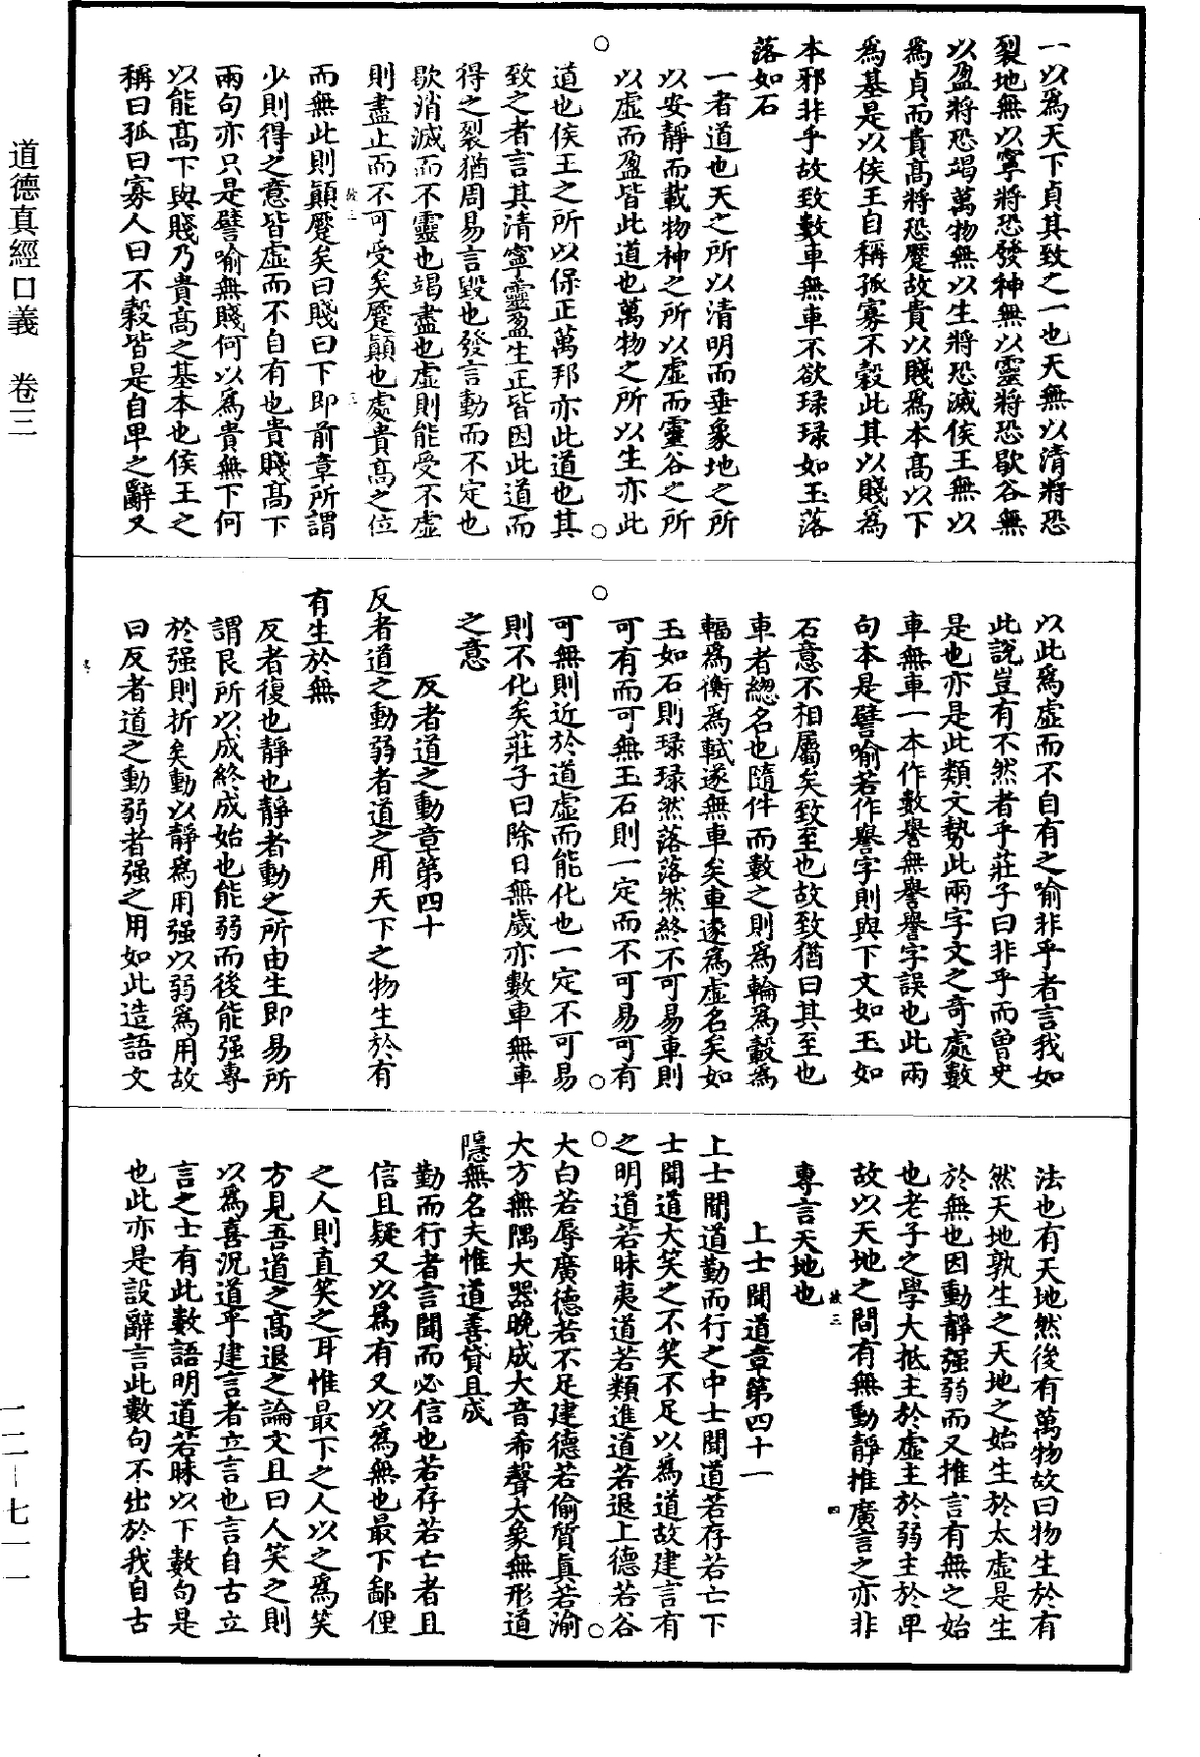 一以爲天下貞其致之一也天無以清將恐
裂地無以寧將恐發神無以靈將恐歇谷無
以盈將恐竭萬物無以生將恐滅侯王無以
爲貞而貴高將恐蹷故貴以賤爲本高以下
爲基是以侯王自稱孤寡不穀此其以賤爲
本邪非乎故致數車無車不欲琭琭如玉落
落如石
一者道也天之所以清明而垂象地之所
以安靜而載物神之所以虛而靈谷之所
以虛而盈皆此道也萬物之所以生亦此
道也侯王之所以保正萬邦亦此道也其
致之者言其清寧靈盈生正皆因此道而
得之裂猶周易言毀也發言動而不定也
歇消滅而不靈也竭盡也虛則能受不虛
則盡止而不可受矣蹷顛也處貴高之位
而無此則顛蹷矣曰賤曰下即前章所謂
少則得之意皆虛而不自有也貴賤高下
兩句亦只是譬喻無賤何以爲貴無下何
以能高下與賤乃貴高之基本也侯王之
稱曰孤曰寡人曰不穀皆是自卑之辭又
以此爲虛而不自有之喻非乎者言我如
此說豈有不然者乎莊子曰非乎而曾史
是也亦是此類文勢此兩字文之奇處數
車無車一本作數譽無譽譽字誤也此兩
句本是譬喻若作譽字則與下文如玉如
石意不相屬矣致至也故致猶曰其至也
車者總名也隨件而數之則爲輪爲轂爲
輻爲衡爲軾遂無車矣車遂爲虛名矣如
玉如石則琭琭然落落然終不可易車則
可有而可無玉石則一定而不可易可有
可無則近於道虛而能化也一定不可易
則不化矣莊子曰除日無歲亦數車無車
之意
反者道之動章第四十
反者道之動弱者道之用天下之物生於有
有生於無
反者復也靜也靜者動之所由生即易所
謂艮所以成終成始也能弱而後能强專
於强則折矣動以靜爲用强以弱爲用故
曰反者道之動弱者强之用如此造語文
法也有天地然後有萬物故曰物生於有
然天地孰生之天地之始生於太虛是生
於無也因動靜强弱而又推言有無之始
也老子之學大抵主於虛主於弱主於卑
故以天地之間有無動靜推廣言之亦非
專言天地也
上士聞道章第四十一
上士聞道勤而行之中士聞道若存若亡下
士聞道大笑之不笑不足以爲道故建言有
之明道若昧夷道若類進道若退上德若谷
大白若辱廣德若不足建德若偷質真若渝
大方無隅大器晚成大音希聲大象無形道
隱無名夫惟道善貸且成
勤而行者言聞而必信也若存若亡者且
信且疑又以爲有又以爲無也最下鄙俚
之人則直笑之耳惟最下之人以之爲笑
方見吾道之高退之論文且曰人笑之則
以爲喜況道乎建言者立言也言自古立
言之士有此數語明道若昧以下數句是
也此亦是設辭言此數句不出於我自古
道德真經口義 卷三
一二—七一一